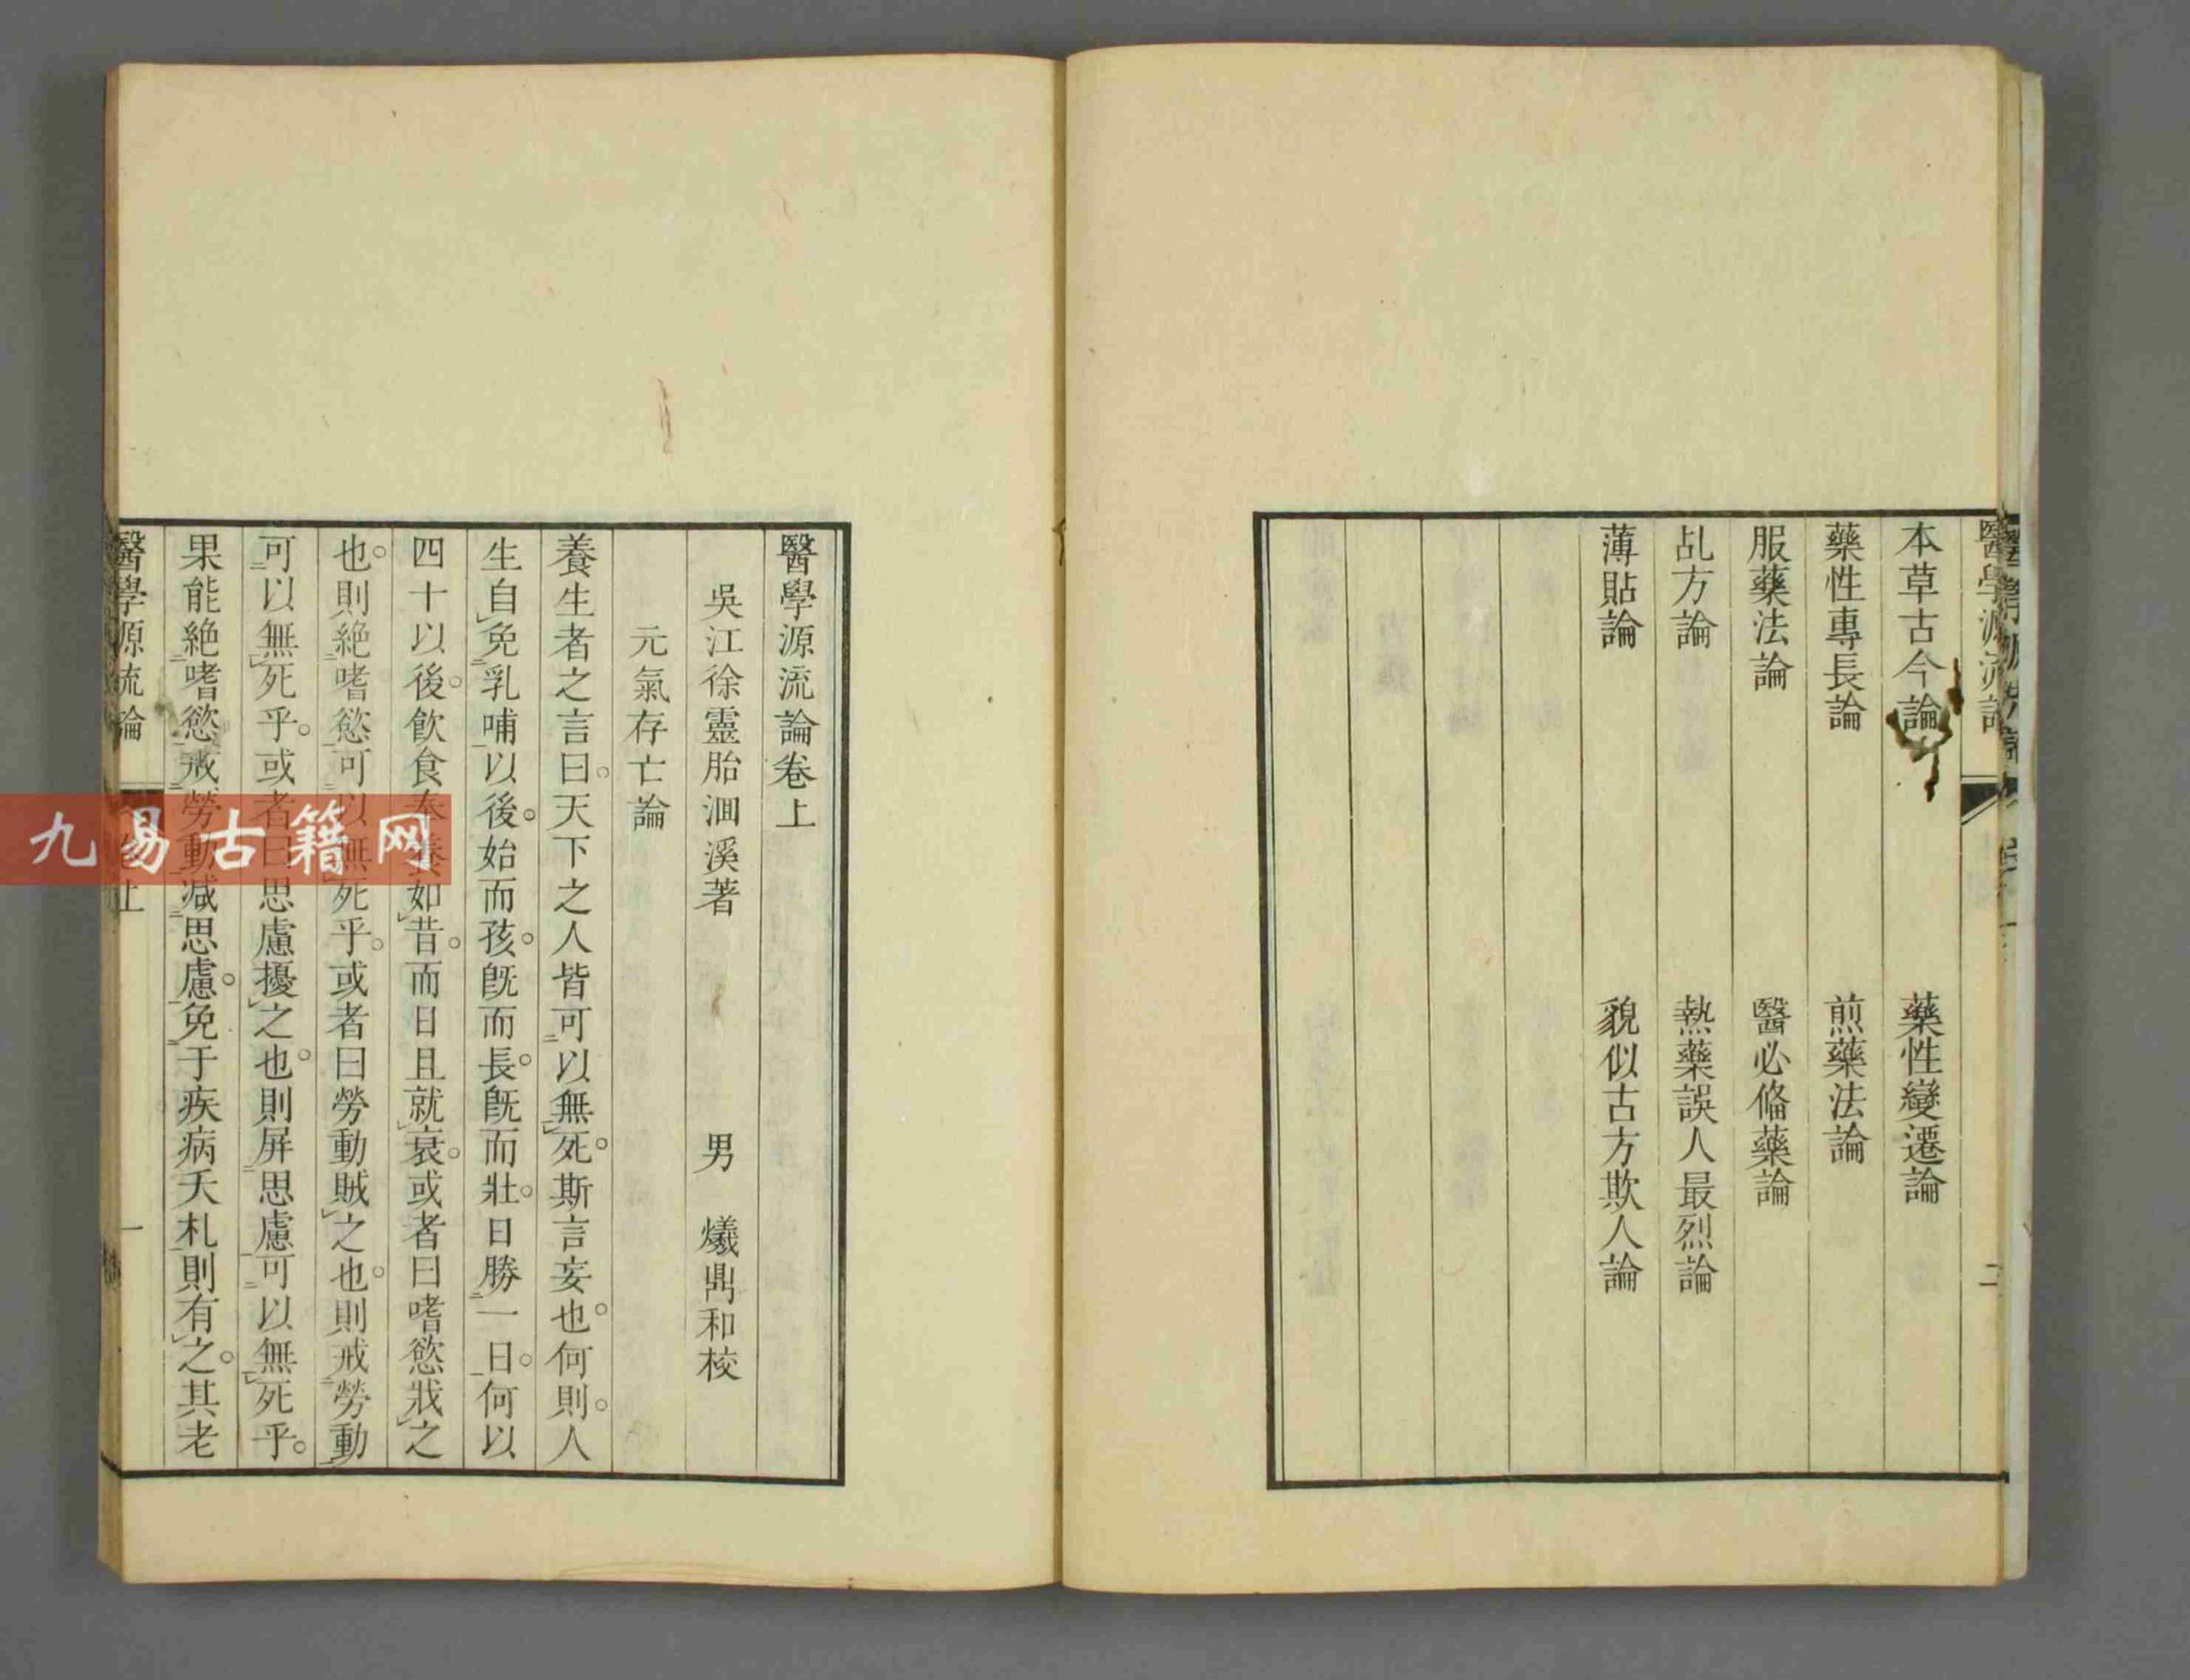 醫學源流論
二
本草古今論 藥性變遷論
藥性專長論 煎藥法論
服藥法論 醫必偹藥論
乩方論 熱藥誤人最烈論
薄貼論 貌似古方欺人論
醫學源流論卷上
吳江徐靈胎洄溪著 男 爔鼎和校
元氣存亡論
養生者之言曰。天下之人皆可以無死。斯言妄也。何則。人
生自免乳哺以後。始而孩。旣而長。旣而壯。日勝一日。何以
四十以後。飮食奉養如昔。而日且就衰。或者曰嗜慾戕之
也。則絕嗜慾可以無死乎。或者曰勞動賊之也。則戒勞動
可以無死乎。或者曰思慮擾之也。則屏思慮可以無死乎。
果能絕嗜慾戒勞動減思慮。免于疾病夭札則有之。其老
醫學源流論 卷上 一
九易古籍网